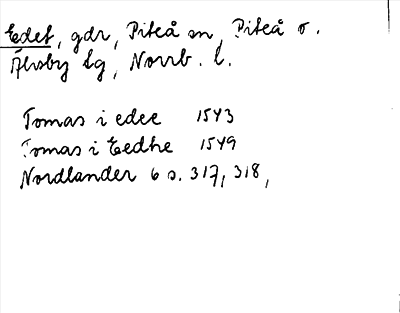 Edet, gdr, Piteå sn, Piteå o.
Älvsby tg, Norrb. l.
Tomas i edee 1543
Tomas i Eedhe 1549
Nordlander 6 s. 317, 318,